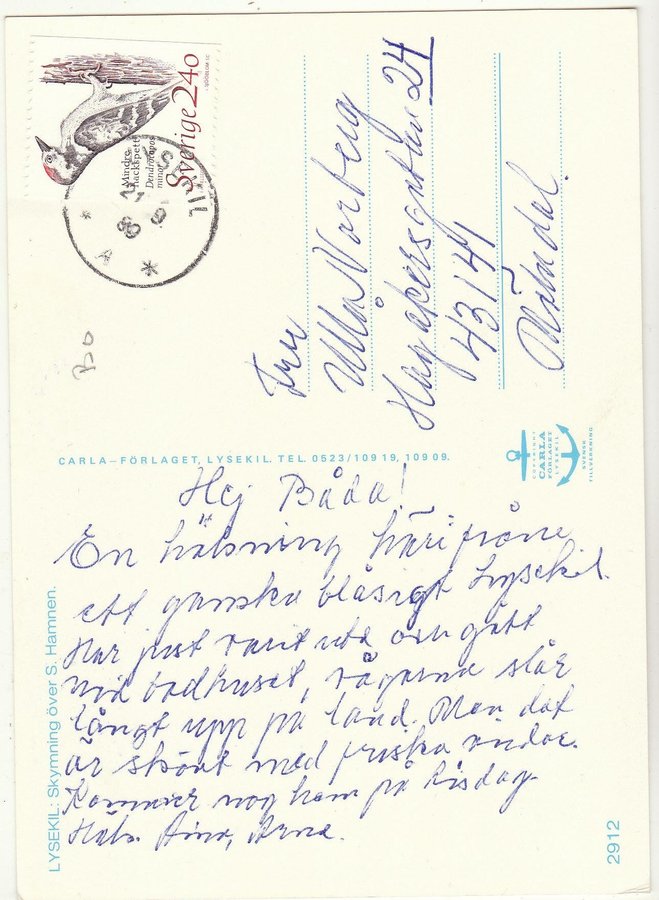 Sverige 240
Mindre
hackspett
Dendrocopos
minor
LYSEKIL
A
Bo
Fru
Ulla Norberg
Hagåkersgatan 24
43141
Mölndal.
CARLA–FÖRLAGET, LYSEKIL. TEL. 0523/109 19, 109 09.
COPYRIGHT
CARLA
FÖRLAGET
LYSEKIL
SVENSK
TILLVERKNING
Hej Båda!
En hälsning härifrån
ett ganska blåsigt Lysekil.
Har just varit ute och gått
vid badhuset, vågorna slår
långt upp på land. Men det
är skönt med friska vindar.
Kommer nog hem på tisdag.
Häls. Aina, Arne.
LYSEKIL: Skymning över S. Hamnen.
2912